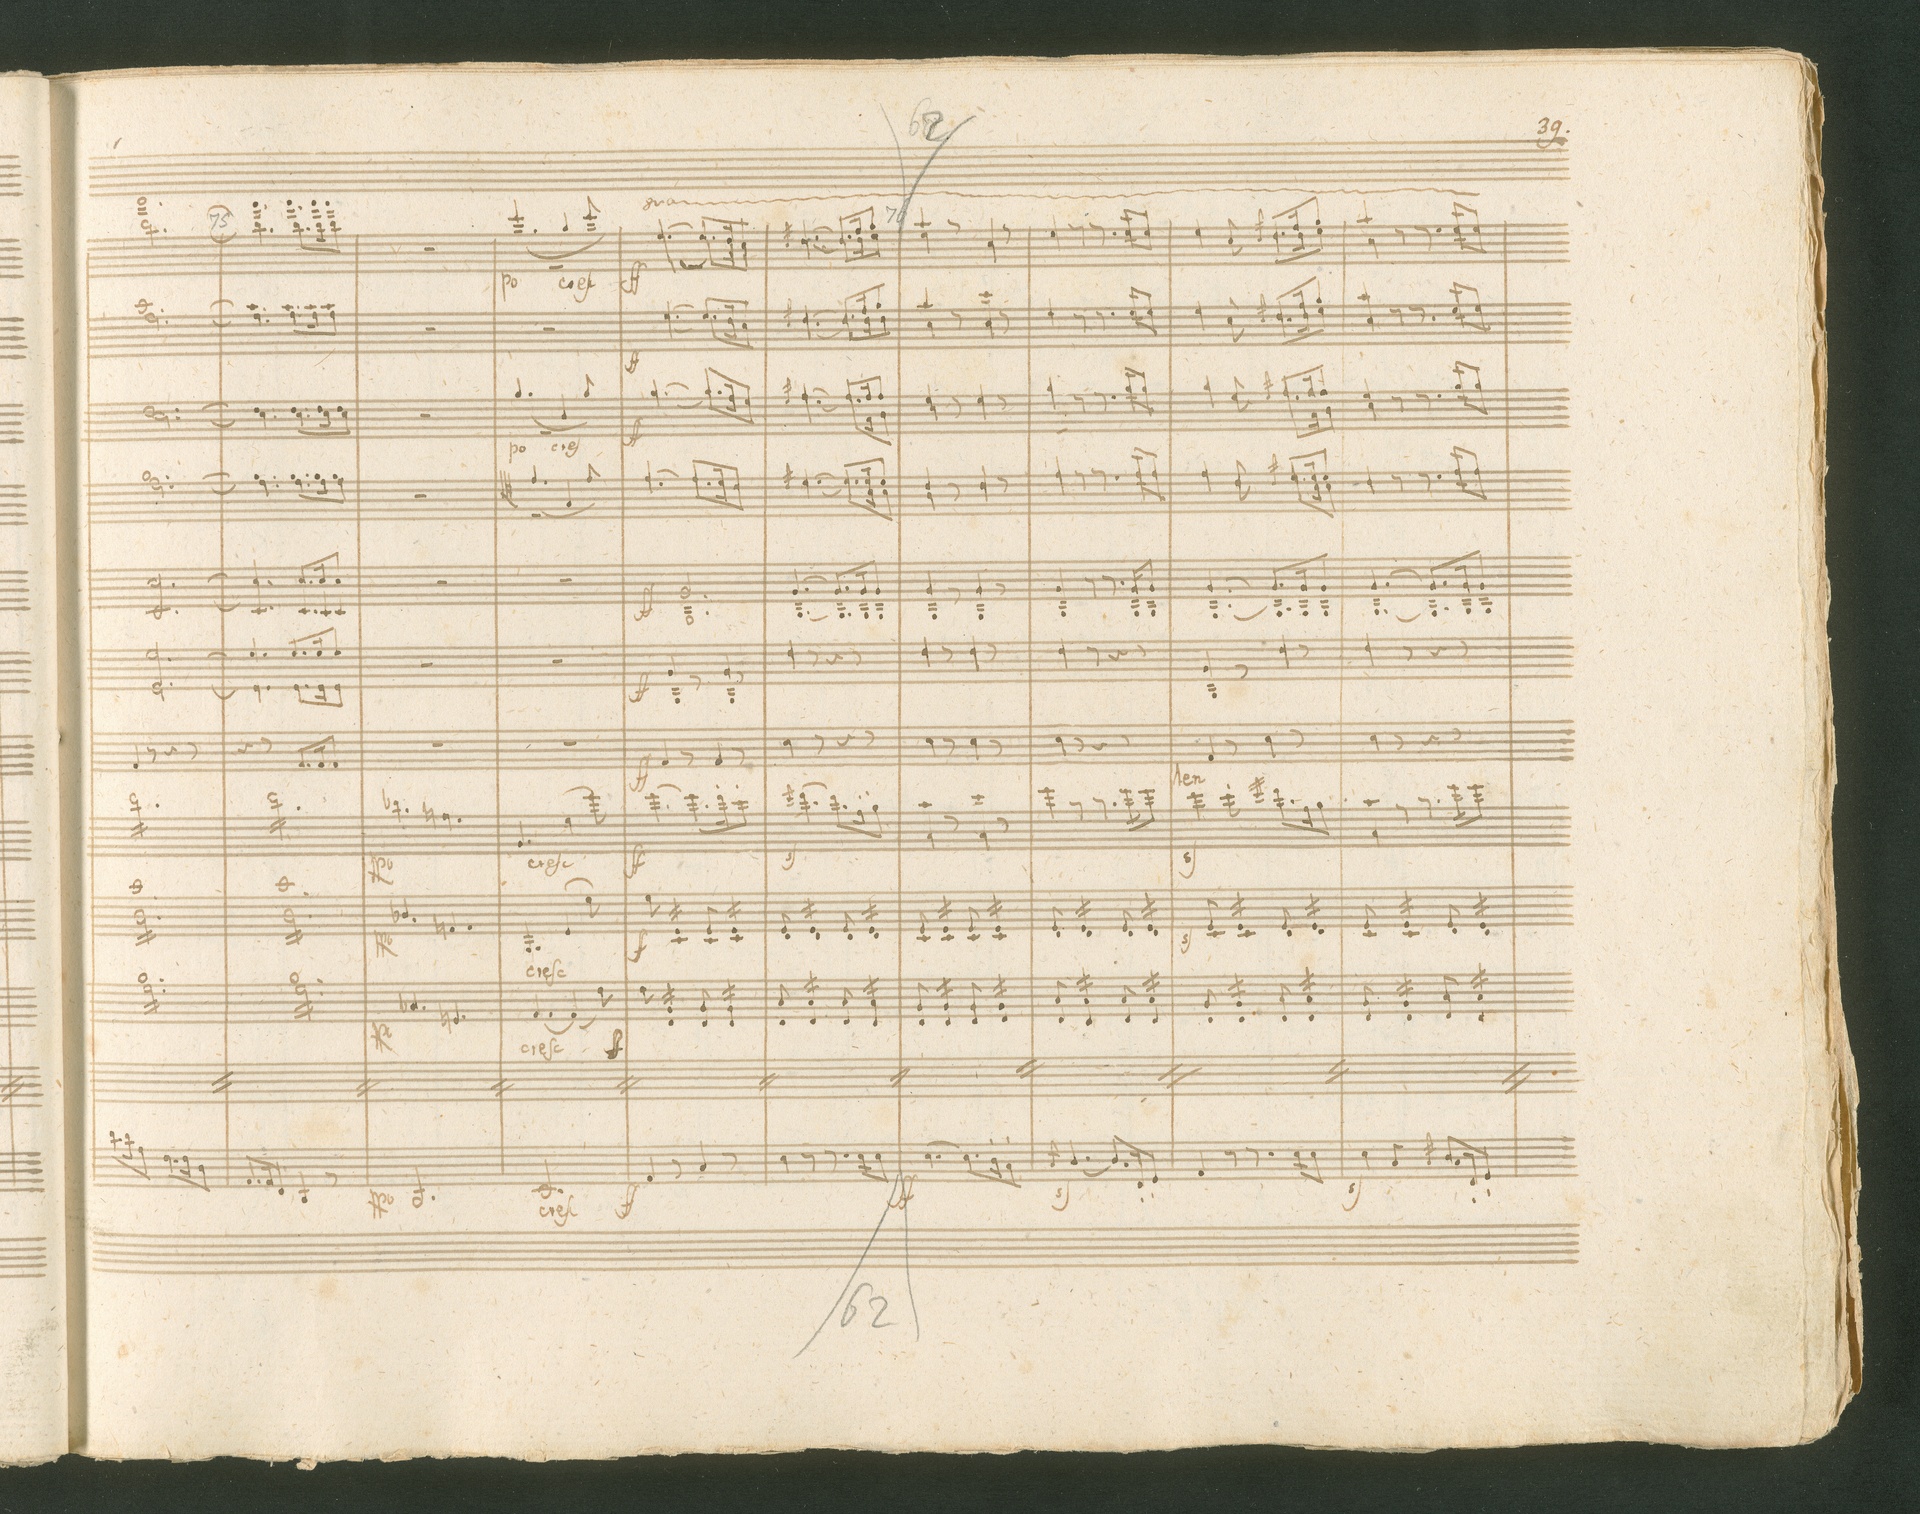 62
39.
75
8va
70
po cresc ff
ff
po cresc ff
ff
ff
ff
ten
ffpo cresc ff sf sf
ffpo cresc ff sf
ffpo cresc ff
ffpo cresc ff ff sf sf
62